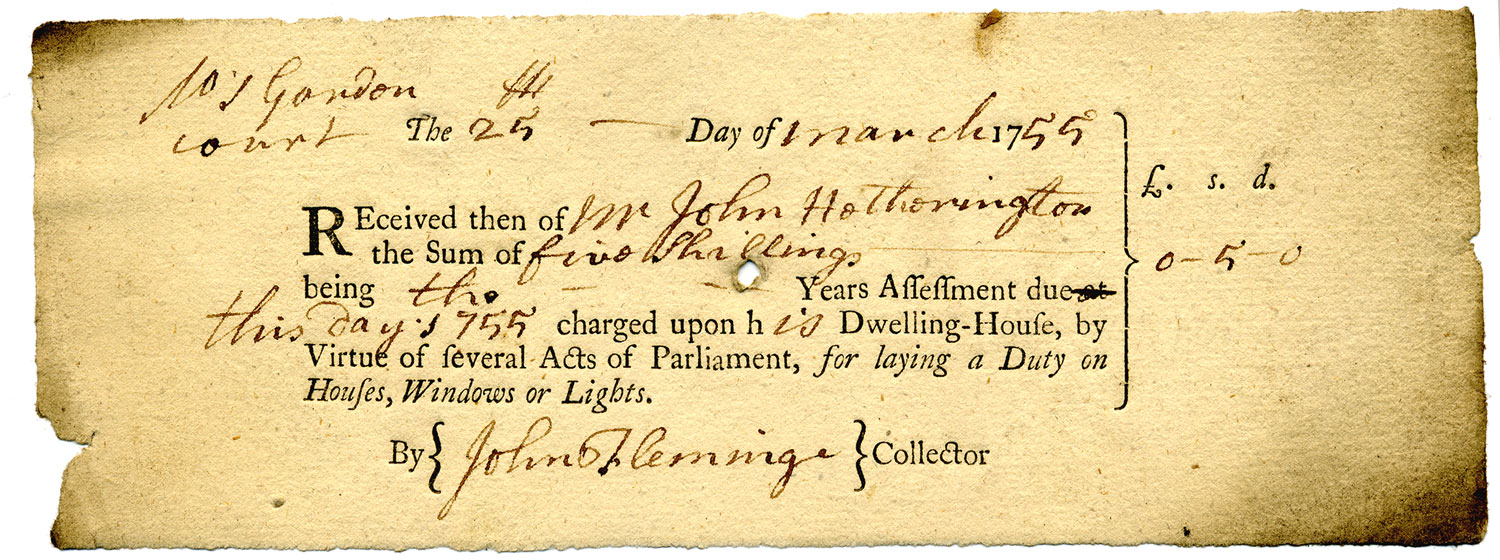 Gordon th
court The 25 — Day of march 1755
£. s. d.
REceived then of Mr John Hetherington
the Sum of five Shillings
0-5-0
being the Years Aſſeſſment due at
this day 1755 charged upon his Dwelling-Houſe, by
Virtue of ſeveral Acts of Parliament, for laying a Duty on
Houſes, Windows or Lights.
By { John Fleminge } Collector